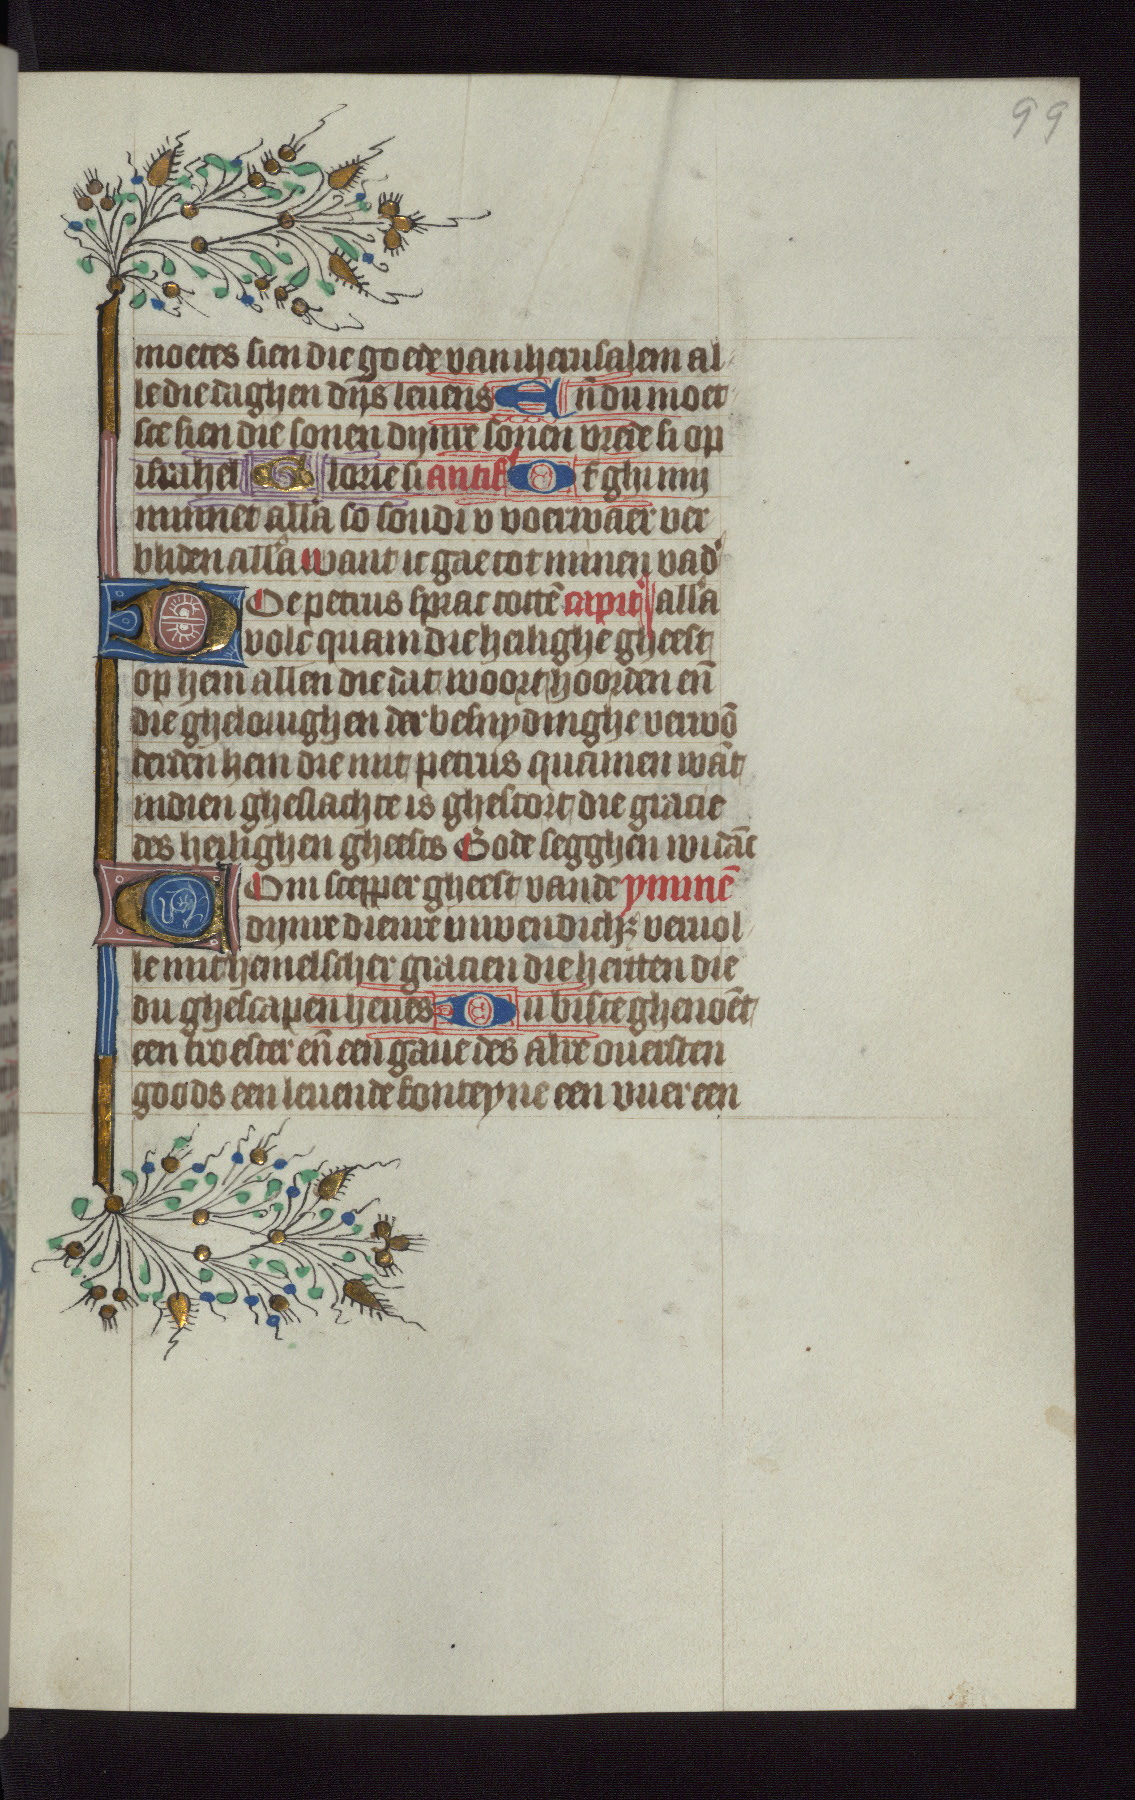 99
moetes sien die goede van iherusalem al
le die daghen dijns leuens En̄ du moet
ste sien die sonen dijnre sonen vrede si op
israhel Glorie si antif Of ghi mij
minnet all'a so soudi v voerwaer ver
bliden all'a want ic gae tot minen vad'
Doe petrus sprac totte̅ capit' all'a
volc quam die heilighe gheest
op hem allen die dat woort hoorden en̄
die ghelouighen der besnydinghe verwo̅
derden hem die mit petrus quamen wa̅t
indien gheslachte is ghestort die gracie
des heilighen gheestes Gode segghen wi da̅c
Com scepper gheest vande ymme̅
dijnre dienre inwendich; veruol
le mit hemelscher gracien die herten die
du ghescapen heues Du biste ghenoe̅t
een troester en̄ een gaue des alre ouersten
goods een leuende fonteyne een vuer een